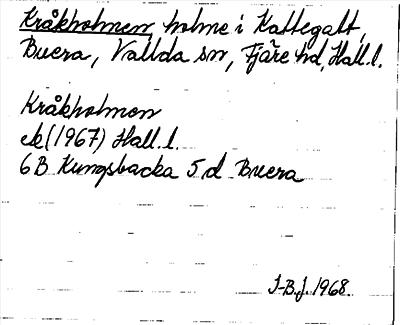 Kråkholmen, holme i Kattegatt,
Buera, Vallda sn, Fjäre hd, Hall. l.
Kråkholmen
ek (1967) Hall. l.
6B Kungsbacka 5 d Buera
I-B.J. 1968.